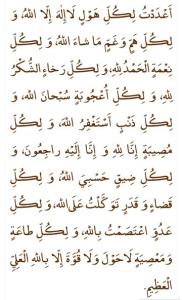 أَعْدَدْتُ لِكُلِّ هَوْلٍ لَا إِلَهَ إِلَّا اللهُ، وَ
لِكُلِّ هَمٍّ وَغَمٍّ مَا شَاءَ اللهُ، وَ لِكُلِّ
نِعْمَةٍ الْحَمْدُ لِلهِ، وَ لِكُلِّ رَخَاءٍ الشُّكْرُ
لِلهِ، وَ لِكُلِّ أُعْجُوبَةٍ سُبْحَانَ اللهِ، وَ
لِكُلِّ ذَنْبٍ أَسْتَغْفِرُ اللهَ، وَ لِكُلِّ
مُصِيبَةٍ إِنَّا لِلهِ وَ إِنَّا إِلَيْهِ رَاجِعُونَ، وَ
لِكُلِّ ضِيقٍ حَسْبِيَ اللهُ، وَ لِكُلِّ
قَضَاءٍ وَ قَدَرٍ تَوَكَّلْتُ عَلَى اللهِ، وَ لِكُلِّ
عَدُوٍّ اعْتَصَمْتُ بِاللهِ، وَ لِكُلِّ طَاعَةٍ
وَ مَعْصِيَةٍ لَا حَوْلَ وَ لَا قُوَّةَ إِلَّا بِاللهِ الْعَلِيِّ
الْعَظِيمِ.